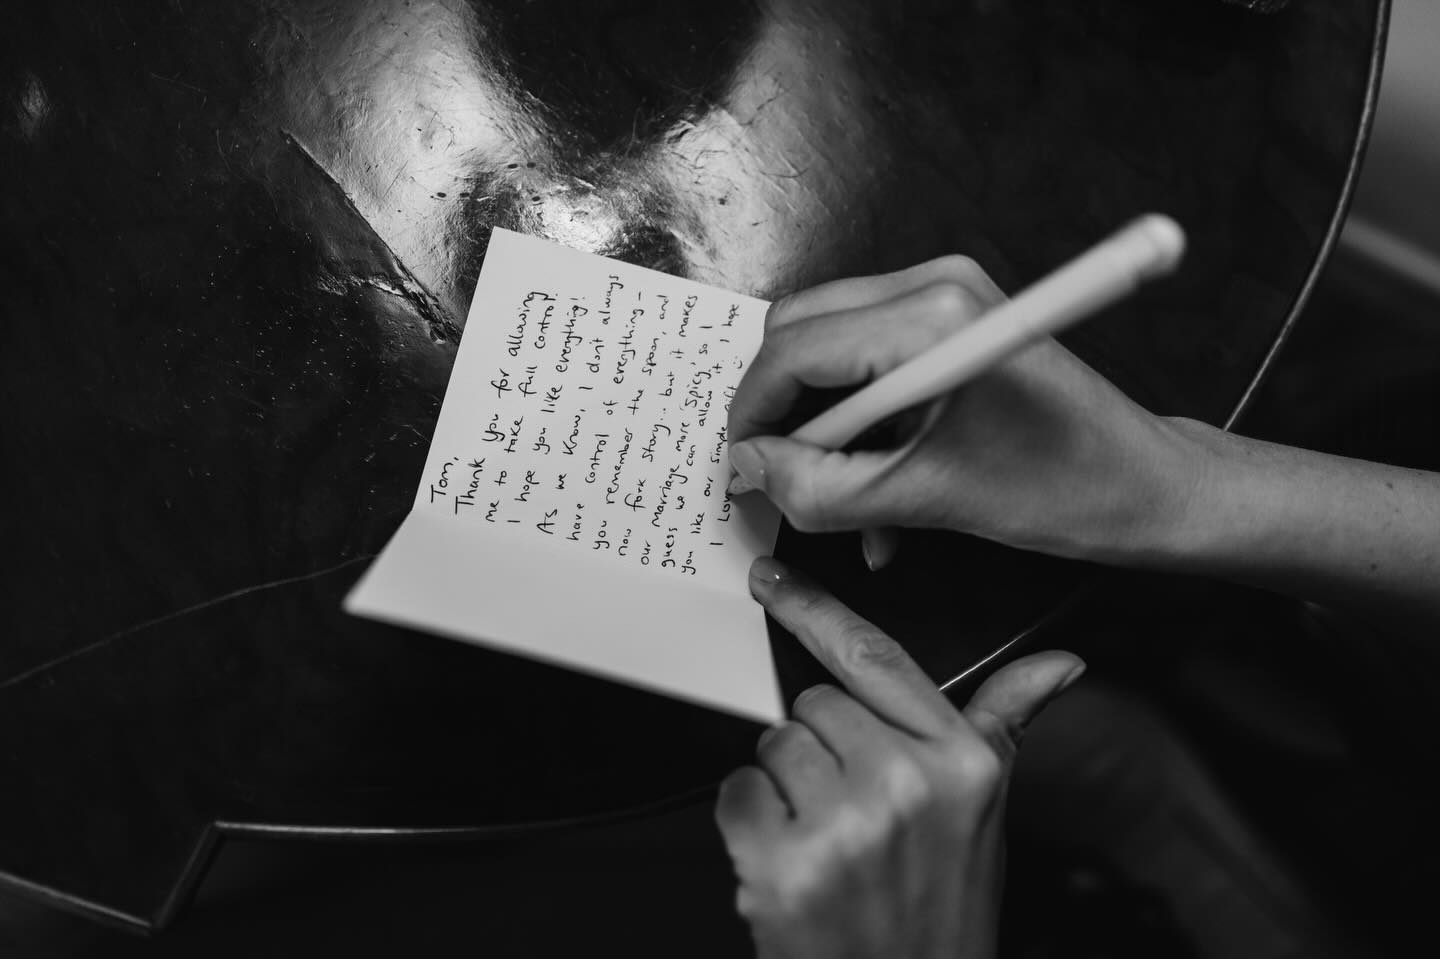 Tom,
Thank you for allowing
me to take full control.
I hope you like everything!
As we know, I don't always
have control of everything -
you remember the spoon, and
now fork story... but it makes
our marriage more 'spicy', so I
guess we can allow it. I hope
you like our simple gift :)
I Lov